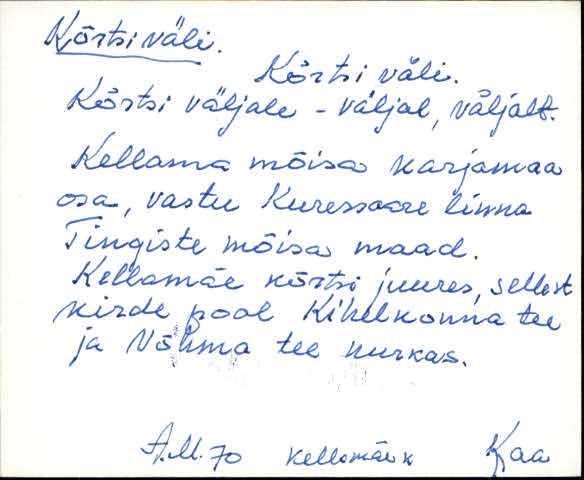 Kõrtsi väli.
Kõrtsi väli.
Kõrtsi väljale - väljal, väljalt.
Kellama mõisa karjamaa
osa, vastu Kuressaare linna
Tingiste mõisa maad.
Kellamäe kõrtsi juures, sellest
kirde pool Kihelkonna tee
ja Nõhma tee nurkas.
A.M. 70 Kellamäe k Kaa